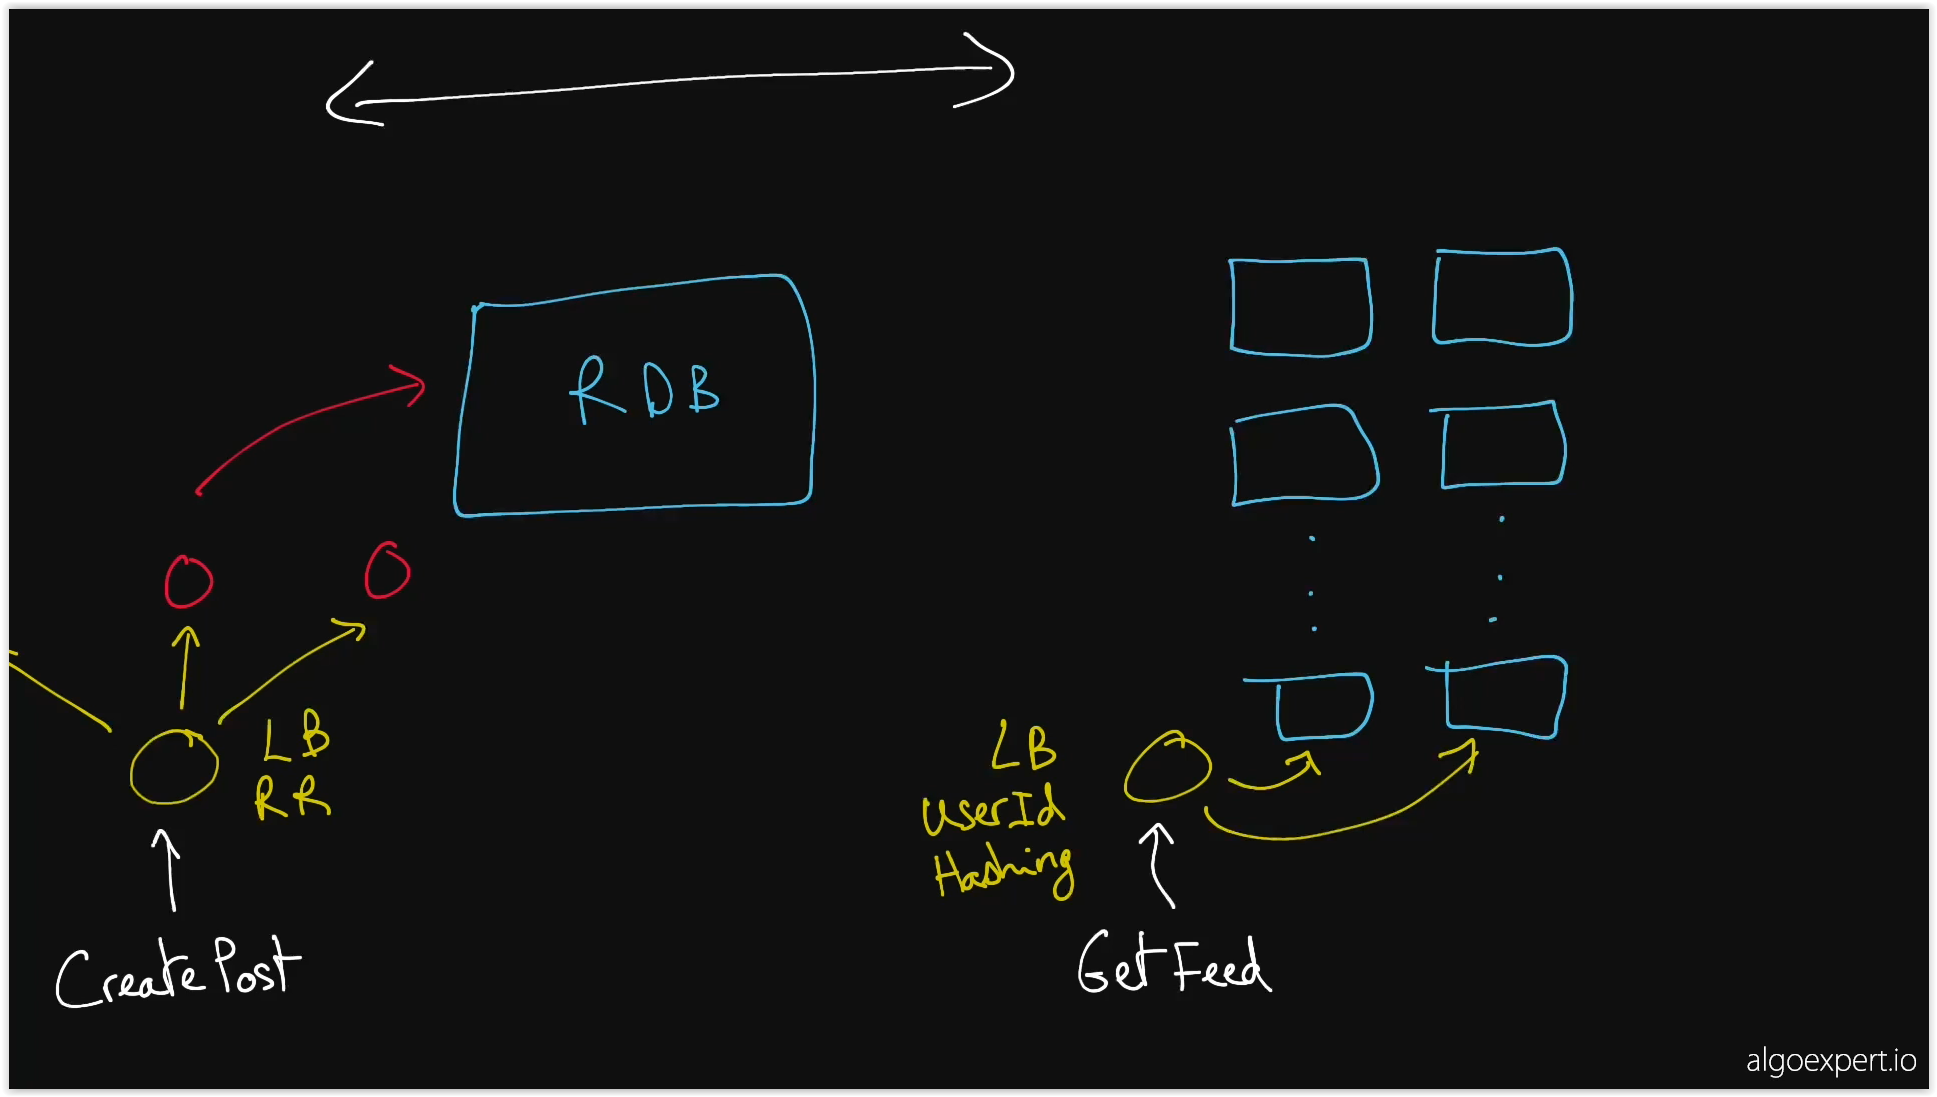 RDB
LB
RR
CreatePost
LB
UserId
Hashing
GetFeed
algoexpert.io